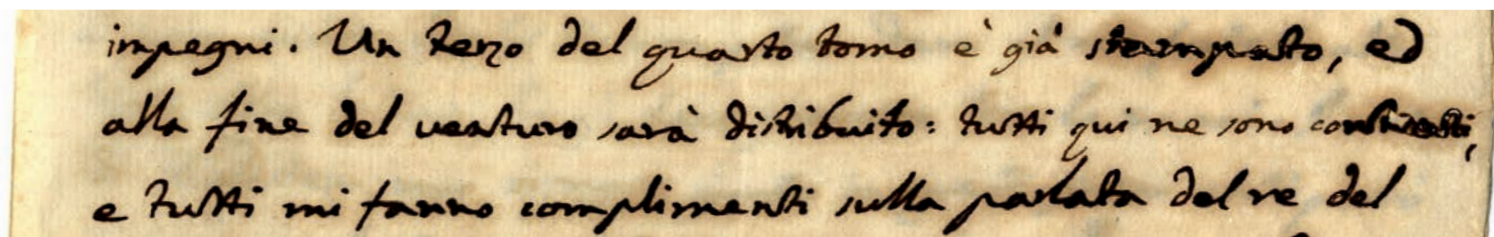 impegni. Un terzo del quarto tomo è già stampato, ed
alla fine del venturo sarà distribuito: tutti qui ne sono contenti,
e tutti mi fanno complimenti sulla parlata del re del